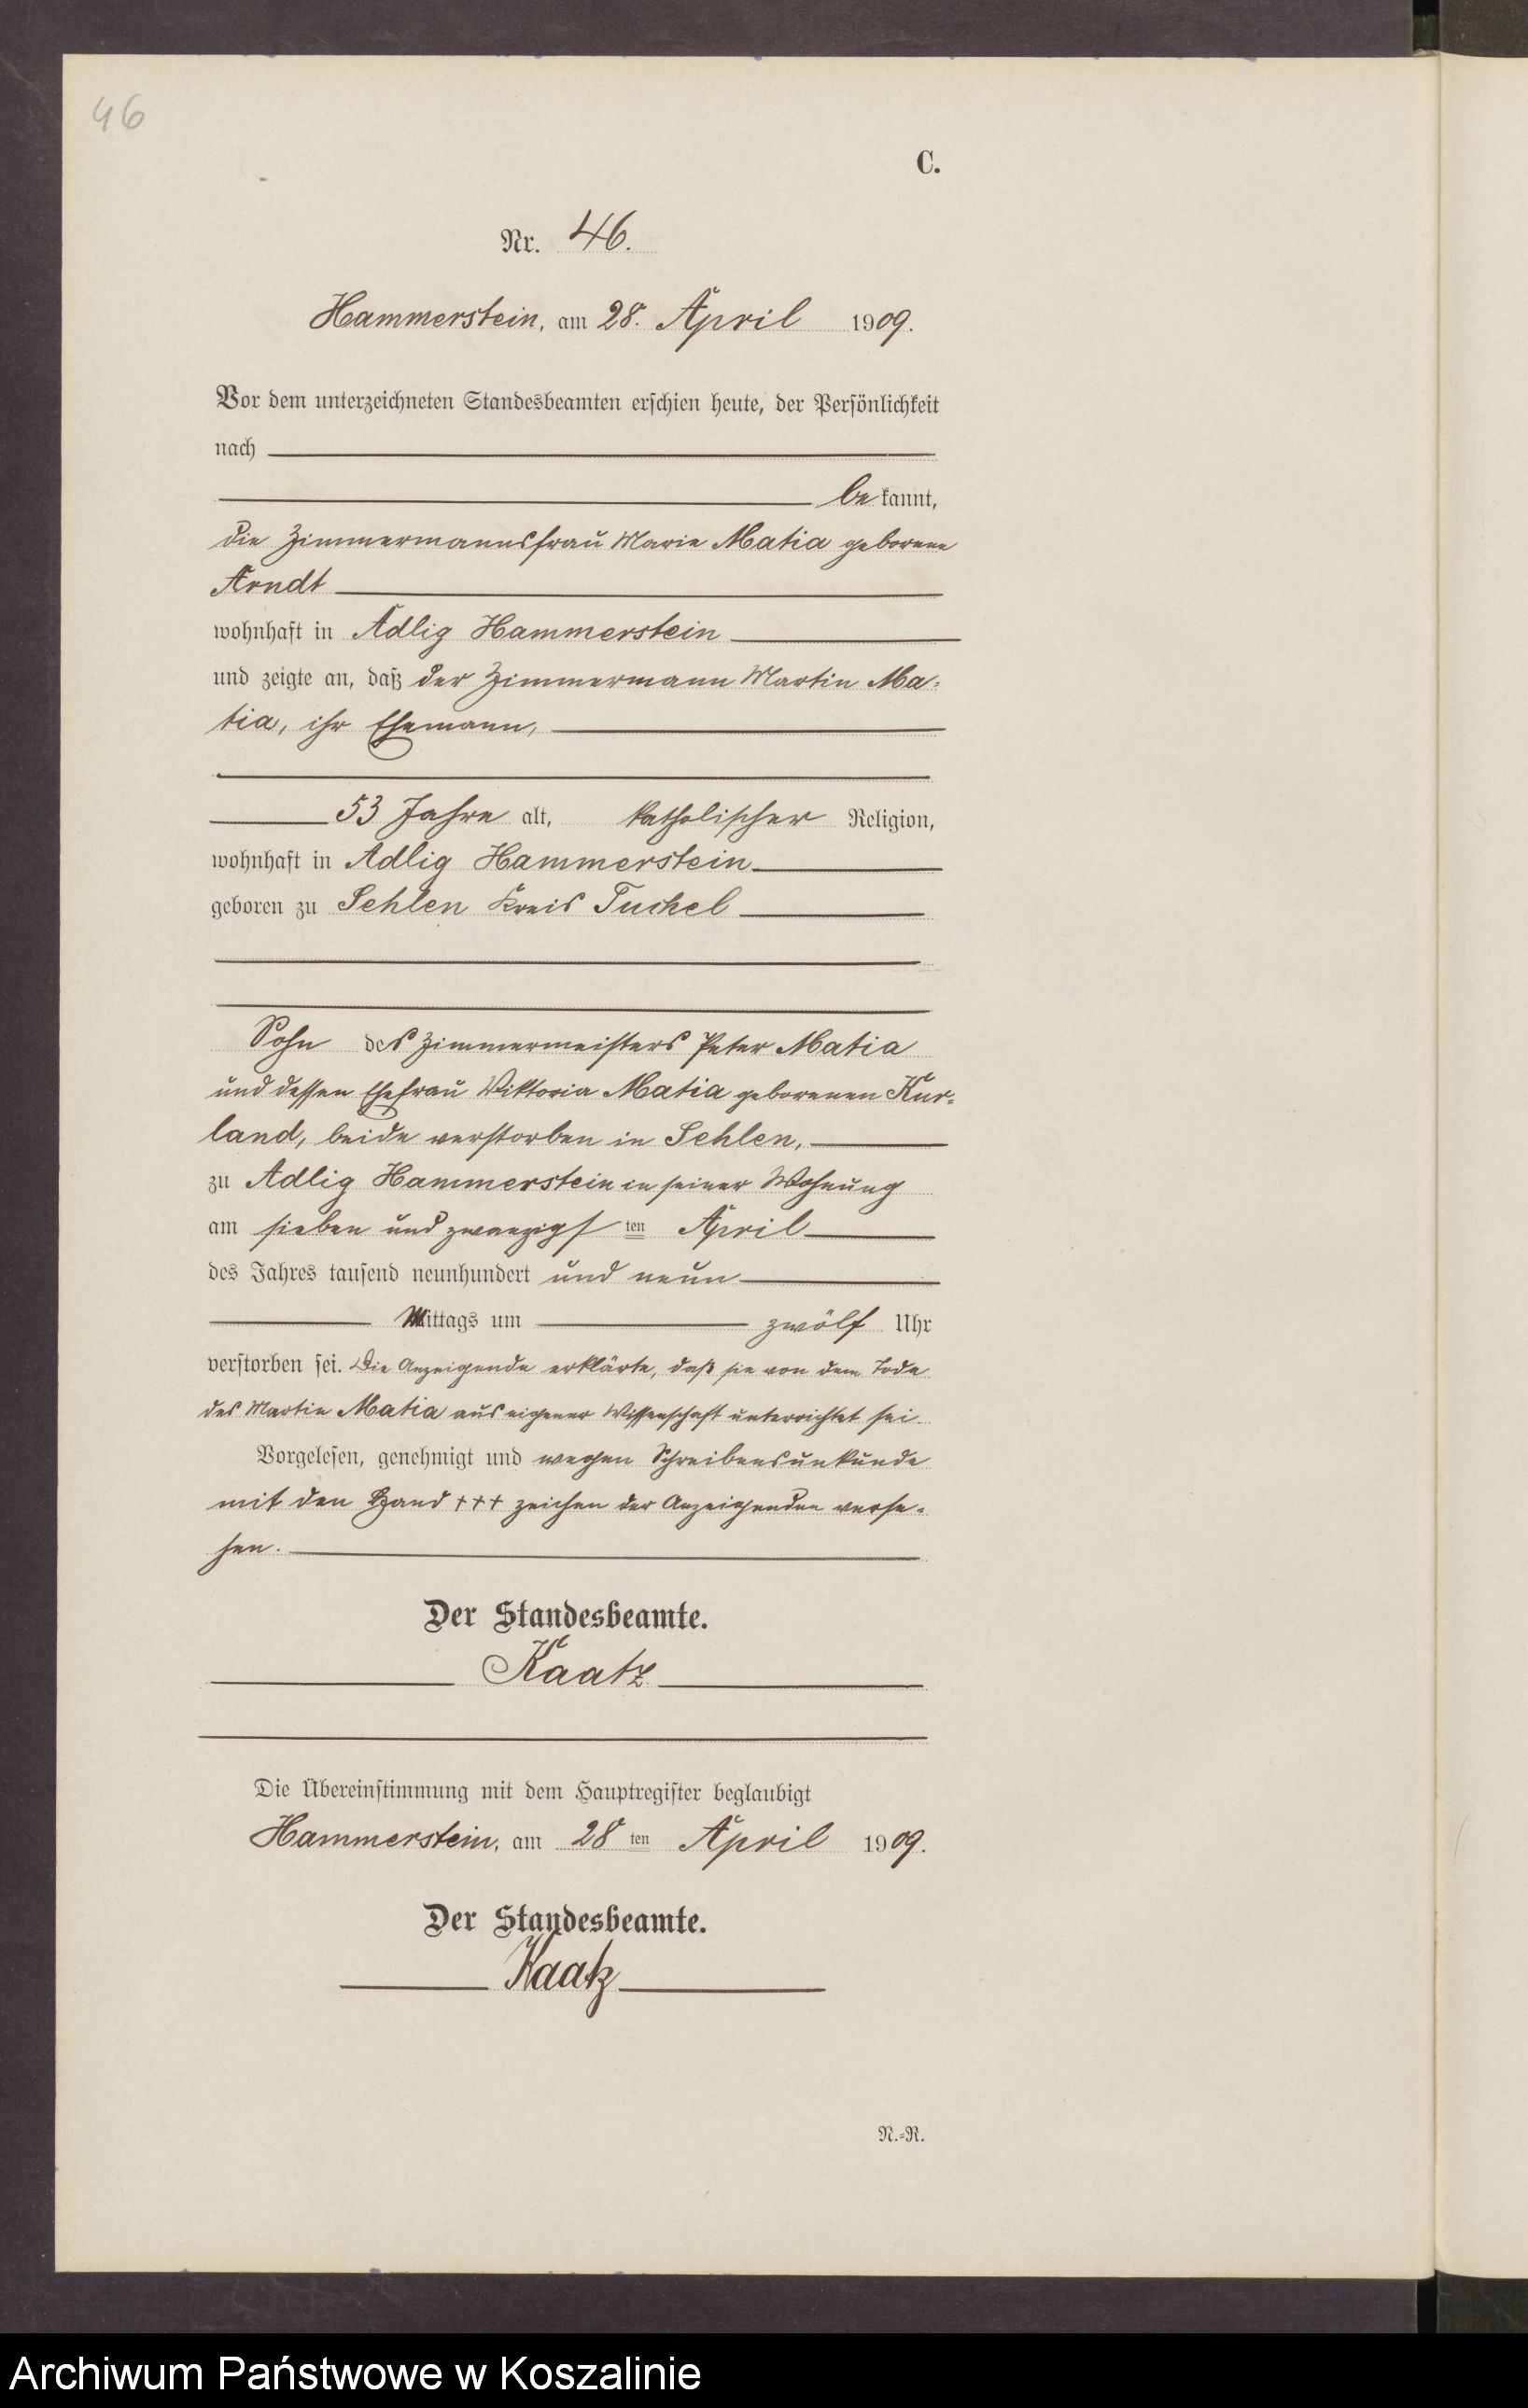 46
C.
Nr. 46.
Hammerstein, am 28. April 1909.
Vor dem unterzeichneten Standesbeamten erschien heute, der Persönlichkeit
nach
be kannt,
die Zimmermannsfrau Marie Matia geborene
Arndt
wohnhaft in Adlig Hammerstein
und zeigte an, daß der Zimmermann Martin Ma-
tia, ihr Ehemann,
53 Jahre alt, katholischer Religion,
wohnhaft in Adlig Hammerstein
geboren zu Sehlen Kreis Tuchel
Sohn des Zimmermeisters Peter Matia
und dessen Ehefrau Viktoria Matia geborenen Kur-
land, beide verstorben in Sehlen,
zu Adlig Hammerstein in seiner Wohnung
am sieben und zwanzigsten April
des Jahres tausend neunhundert und neun
Mittags um zwölf Uhr
verstorben sei. Die Anzeigende erklärte, daß sie von dem Tode
des Martin Matia aus eigener Wissenschaft unterrichtet sei.
Vorgelesen, genehmigt und wegen Schreibensunkunde
mit den Hand +++ zeichen der Anzeigenden verse-
hen.
Der Standesbeamte.
Kaatz
Die Übereinstimmung mit dem Hauptregister beglaubigt
Hammerstein, am 28 ten April 1909.
Der Standesbeamte.
Kaatz
N.-R.
Archiwum Państwowe w Koszalinie